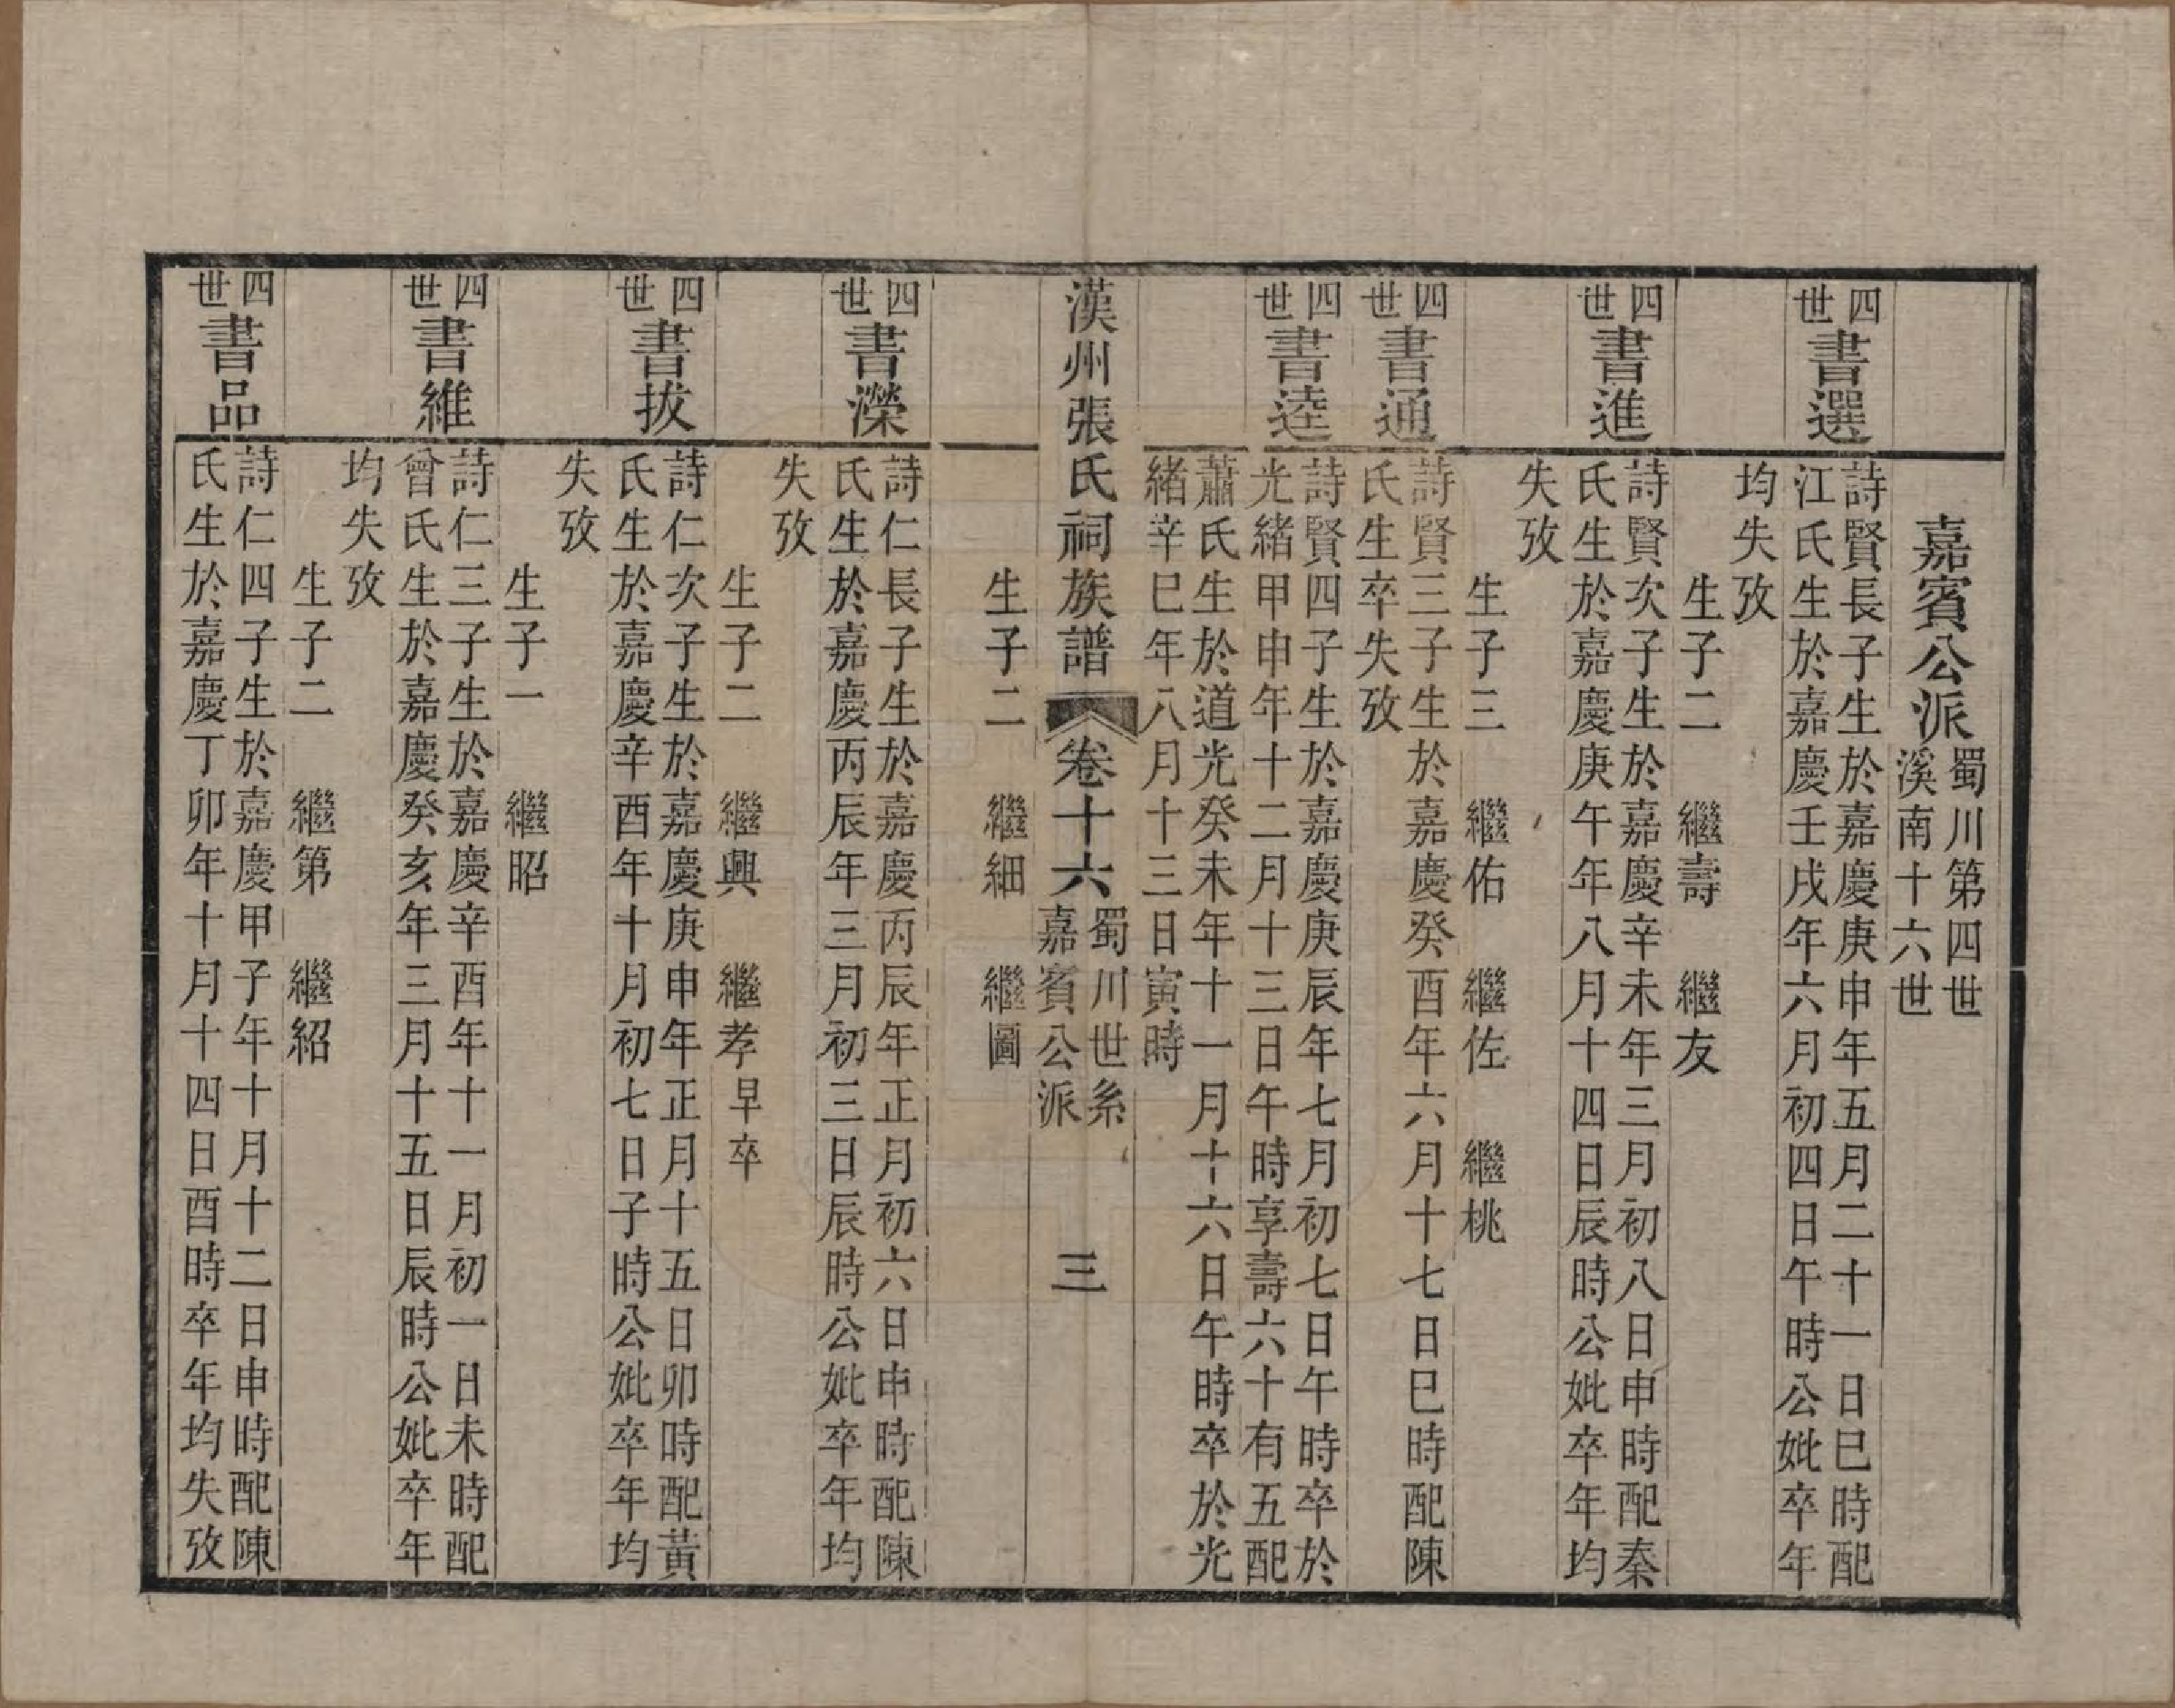 嘉賓公派
蜀川第四世
溪南十六世
四世
書選
詩賢長子生於嘉慶庚申年五月二十一日巳時配
江氏生於嘉慶壬戌年六月初四日午時公妣卒年
均失攷
生子二　繼壽　繼友
四世
書進
詩賢次子生於嘉慶辛未年三月初八日申時配秦
氏生於嘉慶庚午年八月十四日辰時公妣卒年均
失攷
生子三　繼佑　繼佐　繼桃
四世
書通
詩賢三子生於嘉慶癸酉年六月十七日巳時配陳
氏生卒失攷
四世
書逵
詩賢四子生於嘉慶庚辰年七月初七日午時卒於
光緒甲申年十二月十三日午時享壽六十有五配
蕭氏生於道光癸未年十一月十六日午時卒於光
緒辛巳年八月十三日寅時
生子二　繼細　繼圖
漢州張氏祠族譜
卷十六
蜀川世系
嘉賓公派
三
四世
書濚
詩仁長子生於嘉慶丙辰年正月初六日申時配陳
氏生於嘉慶丙辰年三月初三日辰時公妣卒年均
失攷
生子二　繼興　繼孝早卒
四世
書拔
詩仁次子生於嘉慶庚申年正月十五日卯時配黃
氏生於嘉慶辛酉年十月初七日子時公妣卒年均
失攷
生子一　繼昭
四世
書維
詩仁三子生於嘉慶辛酉年十一月初一日未時配
曾氏生於嘉慶癸亥年三月十五日辰時公妣卒年
均失攷
生子二　繼第　繼紹
四世
書品
詩仁四子生於嘉慶甲子年十月十二日申時配陳
氏生於嘉慶丁卯年十月十四日酉時卒年均失攷